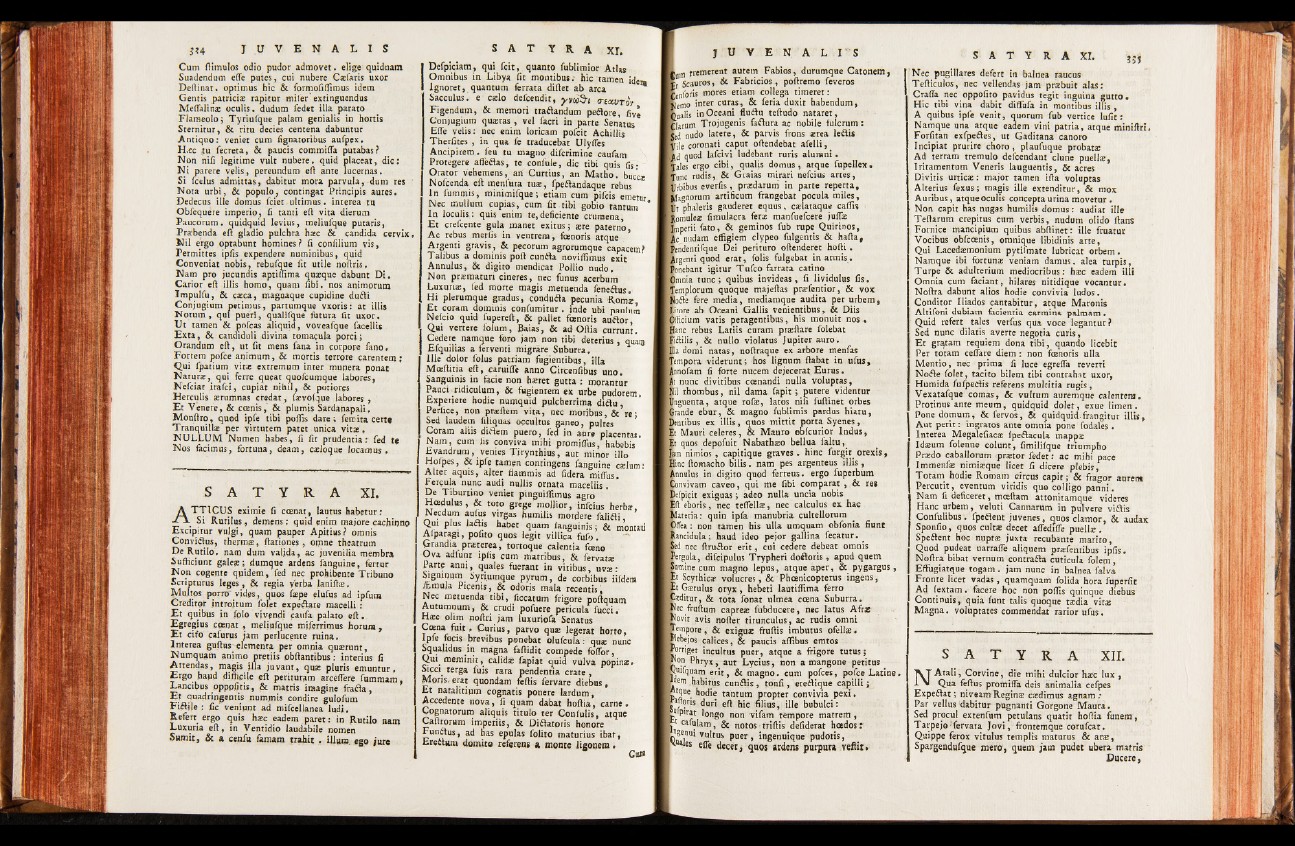 334 JUVENALIS
Cum stimulos odio pudor admovet. elige quidnam
Suadendum esse putes, cui nubere Cæsaris uxor
Destinat. optimus hic & formosissimus idem
Gentis patriciæ rapitur miser extinguendus
Messalinæ oculis. dudum sedet illa parato
Flameolo; Tyriusque palam genialis in hortis
Sternitur, & ritu decies centena dabuntur
Antiquo: veniet cum signatoribus auspex.
Hæc tu secreta, & paucis commissa putabas?
Non nisi legitime vult nubere. quid placeat, dic:
Ni parere velis, pereundum erit ante lucernas.
Si scelus admittas, dabitur mora parvula, dum res
Nota urbi, & populo, contingat Principis aures.
Dedecus ille domus sciet ultimus. interea tu
Obsequere imperio, si tanti est vita dierum
Paucorum. quidquid levius, meliusque putaris,
Præbenda est gladio pulchra hæc & candida cervix.
Nil ergo optabunt homines? si consilium vis,
Permittes ipsis expendere numinibus, quid
Conveniat nobis, rebusque sit utile nostris.
Nam pro jucundis aptissima quæque dabunt Di.
Carior est illis homo, quam sibi. nos animorum
Impulsu, & cæca, magnaque cupidine ducti
Conjugium petimus, partumque uxoris: at illis
Notum, qui pueri, qualisque futura sit uxor.
Ut tamen & poscas aliquid, voveasque sacellis
Exta, & candiduli divina tomacula porci;
Orandum est, ut sit mens sana in corpore sano.
Fortem posce animum, & mortis terrore carentem;
Qui spatium vitæ extremum inter munera ponat
Naturæ, qui ferre queat quoscumque labores,
Nesciat irasci, cupiat nihil, & potiores
Herculis ærumnas credat, sævosque labores,
Et Venere, & cœnis, & plumis Sardanapali.
Monstro, quod ipse tibi possis dare: semita certe
Tranquillæ per virtutem patet unica vitæ.
NULLUM Numen habes, si sit prudentia: sed te
Nos facimus, fortuna, deam, cæloque locamus.
SATYRA XI.
ATTICUS eximie si cœnat, lautus habetur:
Si Rutilus, demens: quid enim majore cachinno
Excipitur vulgi, quam pauper Apitius? omnis
Convictus, thermæ, stationes, omne theatrum
De Rutilo. nam dum valida, ac juvenilia membra
Sufficiunt galeæ; dumque ardens sanguine, fertur
Non cogente quidem, sed nec prohibente Tribuno
Scripturus leges, & regia verba lanistæ.
Multos porro vides, quos sæpe elusus ad ipsum
Creditor introitum solet expectare macelli:
Et quibus in solo vivendi causa palato est.
Egregius cœnat, meliusque miserrimus horum,
Et cito casurus jam perlucente ruina.
Interea gustus elementa per omnia quærunt,
Numquam animo pretiis obstantibus: interius si
Attendas, magis illa juvant, quæ pluris emuntur.
Ergo haud difficile est perituram arcessere summam,
Lancibus oppositis, & matris imagine fracta,
Et quadringentis nummis condire gulosum
Fictile: sic veniunt ad miscellanea ludi.
Refert ergo quis hæc eadem paret: in Rutilo nam
Luxuria est, in Ventidio laudabile nomen
Sumit, & a censu famam trahit. illum ego jure
SATYRA XI.
Despiciam, qui scit, quanto sublimior Atlas
Omnibus in Libya sit montibus: hic tamen idem
Ignoret, quantum ferrata distet ab arca
Sacculus. e cælo descendit, γνῶθι σεαυτόν,
Figendum, & memori tractandum pectore, sive
Conjugium quæras, vel sacri in parte Senatus
Esse velis: nec enim loricam poscit Achillis
Thersites, in qua se traducebat Ulysses
Ancipitem. seu tu magno discrimine causam
Protegere affectas, te consule, dic tibi quis sis:
Orator vehemens, an Curtius, an Matho. buccæ
Noscenda est mensura tuæ, spectandaque rebus
In summis, minimisque: etiam cum piscis emetur.
Nec mullum cupias, cum sit tibi gobio tantum
In loculis: quis enim te, deficiente crumena,
Et crescente gula manet exitus; ære paterno,
Ac rebus mersis in ventrem, fœnoris atque
Argenti gravis, & pecorum agrorumque capacem?
Talibus a dominis post cuncta novissimus exit
Annulus, & digito mendicat Pollio nudo.
Non præmaturi cineres, nec funus acerbum
Luxuriæ, sed morte magis metuenda senectus.
Hi plerumque gradus, conducta pecunia Romæ,
Et coram dominis consumitur. inde ubi paulum
Nescio quid superest, & pallet fœnoris auctor,
Qui vertere solum, Baias, & ad Ostia currunt.
Cedere namque foro jam non tibi deterius, quam
Esquilias a ferventi migrare Suburra.
Ille dolor solus patriam fugientibus, illa
Mœstitia est, caruisse anno Circensibus uno.
Sanguinis in facie non hæret gutta: morantur
Pauci ridiculum, & fugientem ex urbe pudorem.
Experiere hodie numquid pulcherrima dictu,
Perfice, non præstem vita, nec moribus, & re;
Sed laudem siliquas occultus ganeo, pultes
Coram aliis dictem puero, sed in aure placentas.
Nam, cum sis conviva mihi promissus, habebis
Evandrum, venies Tirynthius, aut minor illo
Hospes, & ipse tamen contingens sanguine cælum:
Alter aquis, alter flammis ad sidera missus.
Fercula nunc audi nullis ornata macellis.
De Tiburtino veniet pinguissimus agro
Hœdulus, & toto grege mollior, inscius herbæ,
Necdum ausus virgas humilis mordere salicti,
Qui plus lactis habet quam sanguinis; & montani
Asparagi, posito quos legit villica fuso.
Grandia præterea, tortoque calentia fœno
Ova adsunt ipsis cum matribus, & servatæ
Parte anni, quales fuerant in vitibus, uvæ:
Signinum Syriumque pyrum, de corbibus iisdem
Æmula Picenis, & odoris mala recentis,
Nec metuenda tibi, siccatum frigore postquam
Autumnum, & crudi posuere pericula succi.
Hæc olim nostri jam luxuriosa Senatus
Cœna fuit. Curius, parvo quæ legerat horto,
Ipse focis brevibus ponebat oluscula: quæ nunc
Squalidus in magna fastidit compede fossor,
Qui meminit, calidæ sapiat quid vulva popinæ.
Sicci terga suis rara pendentia crate,
Moris erat quondam festis servare diebus,
Et natalitium cognatis ponere lardum,
Accedente nova, si quam dabat hostia, carne.
Cognatorum aliquis titulo ter Consulis, atque
Castrorum imperiis, & Dictatoris honore
Functus, ad has epulas solito maturius ibat,
Erectum domito referens a monte ligonem.
Cum
JUVENALIS
Cum tremerent autem Fabios, durumque Catonem,
Et Scauros, & Fabricios, postremo severos
Censoris mores etiam collega timeret:
Nemo inter curas, & seria duxit habendum,
Qualis in Oceani fluctu testudo nataret,
Clarum Trojugenis factura ac nobile fulcrum:
Sed nudo latere, & parvis frons ærea lectis
Vile coronati caput ostendebat aselli,
Ad quod lascivi ludebant ruris alumni.
Tales ergo cibi, qualis domus, atque supellex.
Tunc rudis, & Graias mirari nescius artes,
Urbibus eversis, prædarum in parte reperta,
Magnorum artificum frangebat pocula miles,
Ut phaleris gauderet equus. cælataque cassis
Romuleæ simulacra feræ mansuescere jussæ
Imperii fato, & geminos sub rupe Quirinos,
Ac nudam effigiem clypeo fulgentis & hasta,
Pendentisque Dei perituro ostenderet hosti.
Argenti quod erat, solis fulgebat in armis.
Ponebant igitur Tusco farrata catino
Omnia tunc; quibus invideas, si lividulus sis.
Templorum quoque majestas præsentior, & vox
Nocte fere media, mediamque audita per urbem,
Litore ab Oceani Gallis venientibus, & Diis
Officium vatis peragentibus, his monuit nos.
Hanc rebus Latiis curam præstare solebat
Fictilis, & nullo violatus Jupiter auro.
Illa domi natas, nostraque ex arbore mensas
Tempora viderunt; hos lignum stabat in usus,
Annosam si forte nucem dejecerat Eurus.
At nunc divitibus cœnandi nulla voluptas,
Nil rhombus, nil dama sapit; putere videntur
Unguenta, atque rosæ, latos nisi sustinet orbes
Grande ebur, & magno sublimis pardus hiatu,
Dentibus ex illis, quos mittit porta Syenes,
Et Mauri celeres, & Mauro obscurior Indus,
Et quos deposuit Nabathæo bellua saltu,
Jam nimios, capitique graves. hinc surgit orexis,
Hinc stomacho bilis. nam pes argenteus illis,
Annulus in digito quod ferreus. ergo superbum
Convivam caveo, qui me sibi comparat, & res
Despicit exiguas; adeo nulla uncia nobis
Est eboris, nec tessellæ, nec calculus ex hac
Materia: quin ipsa manubria cultellorum
Ossea: non tamen his ulla umquam obsonia fiunt
Rancidula; haud ideo pejor gallina secatur.
Sed nec structor erit, cui cedere debeat omnis
Pergula, discipulus Trypheri doctoris, apud quem
Sumine cum magno lepus, atque aper, & pygargus,
Et Scythicæ volucres, & Phœnicopterus ingens,
Et Gætulus oryx, hebeti lautissima ferro
Cæditur, & tota sonat ulmea cœna Suburra.
Nec frustum capreæ subducere, nec latus Afræ
Novit avis noster tirunculus, ac rudis omni
Tempore, & exiguæ frustis imbutus ofellæ.
Plebejos calices, & paucis assibus emtos
Porriget incultus puer, atque a frigore tutus;
Non Phryx, aut Lycius, non a mangone petitus
Quisquam erit, & magno. cum posces, posce Latine.
Idem habitus cunctis, tonsi, erectique capilli;
Atque hodie tantum propter convivia pexi.
Pastoris duri est hic filius, ille bubulci:
Suspirat longo non visam tempore matrem,
Et casulam, & notos tristis desiderat hœdos:
Ingenui vultus puer, ingenuique pudoris,
Quales esse decet, quos ardens purpura vestit.
SATYRA XI. 335
Nec pugillares defert in balnea raucus
Testiculos, nec vellendas jam præbuit alas:
Crassa nec opposito pavidus tegit inguina gutto.
Hic tibi vina dabit diffusa in montibus illis,
A quibus ipse venit, quorum sub vertice lusit:
Namque una atque eadem vini patria, atque ministri.
Forsitan expectes, ut Gaditana canoro
Incipiat prurire choro, plausuque probatæ
Ad terram tremulo descendant clune puellæ,
Irritamentum Veneris languentis, & acres
Divitis urticæ: major tamen ista voluptas
Alterius sexus; magis ille extenditur, & mox
Auribus, atque oculis concepta urina movetur.
Non capit has nugas humilis domus: audiat ille
Testarum crepitus cum verbis, nudum olido stans
Fornice mancipium quibus abstinet: ille fruatur
Vocibus obscœnis, omnique libidinis arte,
Qui Lacedæmonium pytismate lubricat orbem.
Namque ibi fortunæ veniam damus. alea turpis,
Turpe & adulterium mediocribus: hæc eadem illi
Omnia cum faciant, hilares nitidique vocantur.
Nostra dabunt alios hodie convivia ludos.
Conditor Iliados cantabitur, atque Maronis
Altisoni dubiam facientia carmina palmam.
Quid refert tales versus qua voce legantur?
Sed nunc dilatis averte negotia curis,
Et gratam requiem dona tibi, quando licebit
Per totam cessare diem: non fœnoris ulla
Mentio, nec prima si luce egressa reverti
Nocte solet, tacito bilem tibi contrahat uxor,
Humida suspectis referens multitia rugis,
Vexatasque comas, & vultum auremque calentem.
Protinus ante meum, quidquid dolet, exue limen.
Pone domum, & servos, & quidquid frangitur illis,
Aut perit: ingratos ante omnia pone sodales.
Interea Megalesiacæ spectacula mappæ
Idæum solenne colunt, similisque triumpho
Prædo caballorum prætor sedet: ac mihi pace
Immensæ nimiæque licet si dicere plebis,
Totam hodie Romam circus capit; & fragor aurem
Percutit, eventum viridis quo colligo panni.
Nam si deficeret, mœstam attonitamque videres
Hanc urbem, veluti Cannarum in pulvere victis
Consulibus. spectent juvenes, quos clamor, & audax
Sponsio, quos cultæ decet assedisse puellæ.
Spectent hoc nuptæ juxta recubante marito,
Quod pudeat narrasse aliquem præsentibus ipsis.
Nostra bibat vernum contracta cuticula solem,
Effugiatque togam. jam nunc in balnea salva
Fronte licet vadas, quamquam solida hora supersit
Ad sextam. facere hoc non possis quinque diebus
Continuis, quia sunt talis quoque tædia vitæ
Magna. voluptates commendat rarior usus.
SATYRA XII.
NAtali, Corvine, die mihi dulcior hæc lux,
Qua festus promissa deis animalia cespes
Expectat; niveam Reginæ cædimus agnam:
Par vellus dabitur pugnanti Gorgone Maura.
Sed procul extensum petulans quatit hostia funem,
Tarpejo servata Jovi, frontemque coruscat.
Quippe ferox vitulus templis maturus & aræ,
Spargendusque mero, quem jam pudet ubera matris
Ducere,